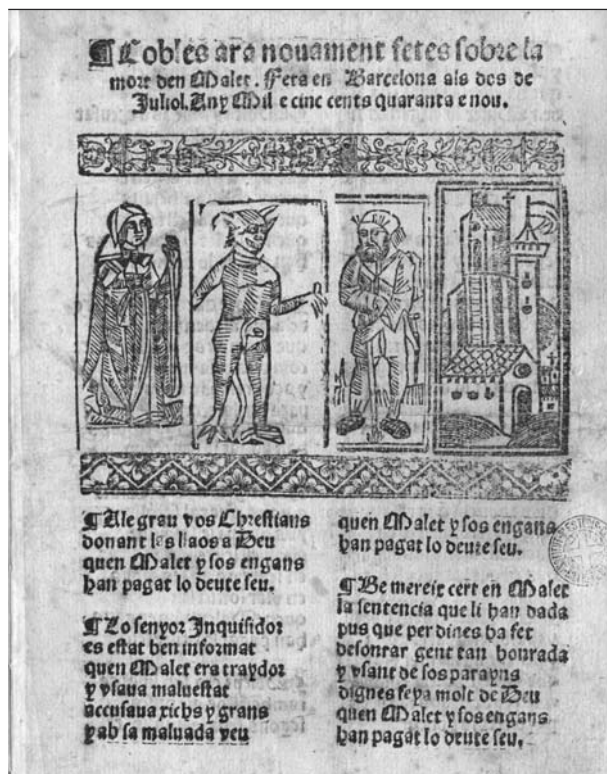 ¶ Cobles ara nouament fetes sobre la
mort den Malet. Feta en Barcelona als dos de
Juliol. Any Mil e cinc cents quaranta e nou.
¶ Alegrau vos Chrestians
donant les llaos a Deu
quen Malet y sos engans
han pagat lo deute seu.
¶ Lo senyor Inquisidor
es estat ben informat
quen Malet era traydor
y vsaua maluestat
accusaua richs y grans
y ab sa maluada veu
quen Malet y sos engans
han pagat lo deute seu.
¶ Be mereix cert en Malet
la sentencia que li han dada
pus que per dines ha fet
desonrar gent tan honrada
y vsant de sos parayns
dignes seya molt de Deu
quen Malet y sos engans
han pagat lo deute seu.